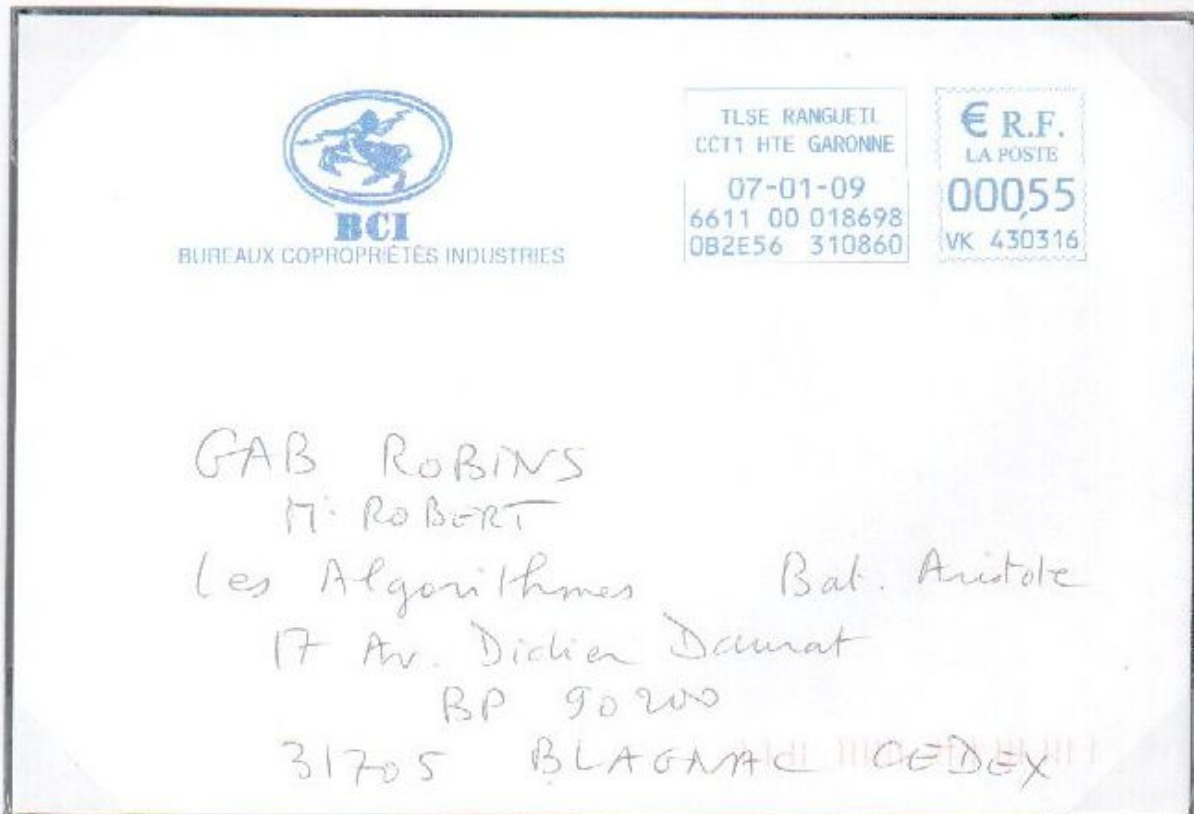 BCI
BUREAUX COPROPRIÉTÉS INDUSTRIES
TLSE RANGUEIL
CCT1 HTE GARONNE
07-01-09
6611 00 018698
0B2E56 310860
€ R.F.
LA POSTE
000,55
VK 430316
GAB ROBINS
Mr ROBERT
Les Algorithmes Bat. Aristote
17 Av. Didier Daurat
BP 90200
31705 BLAGNAC CEDEX